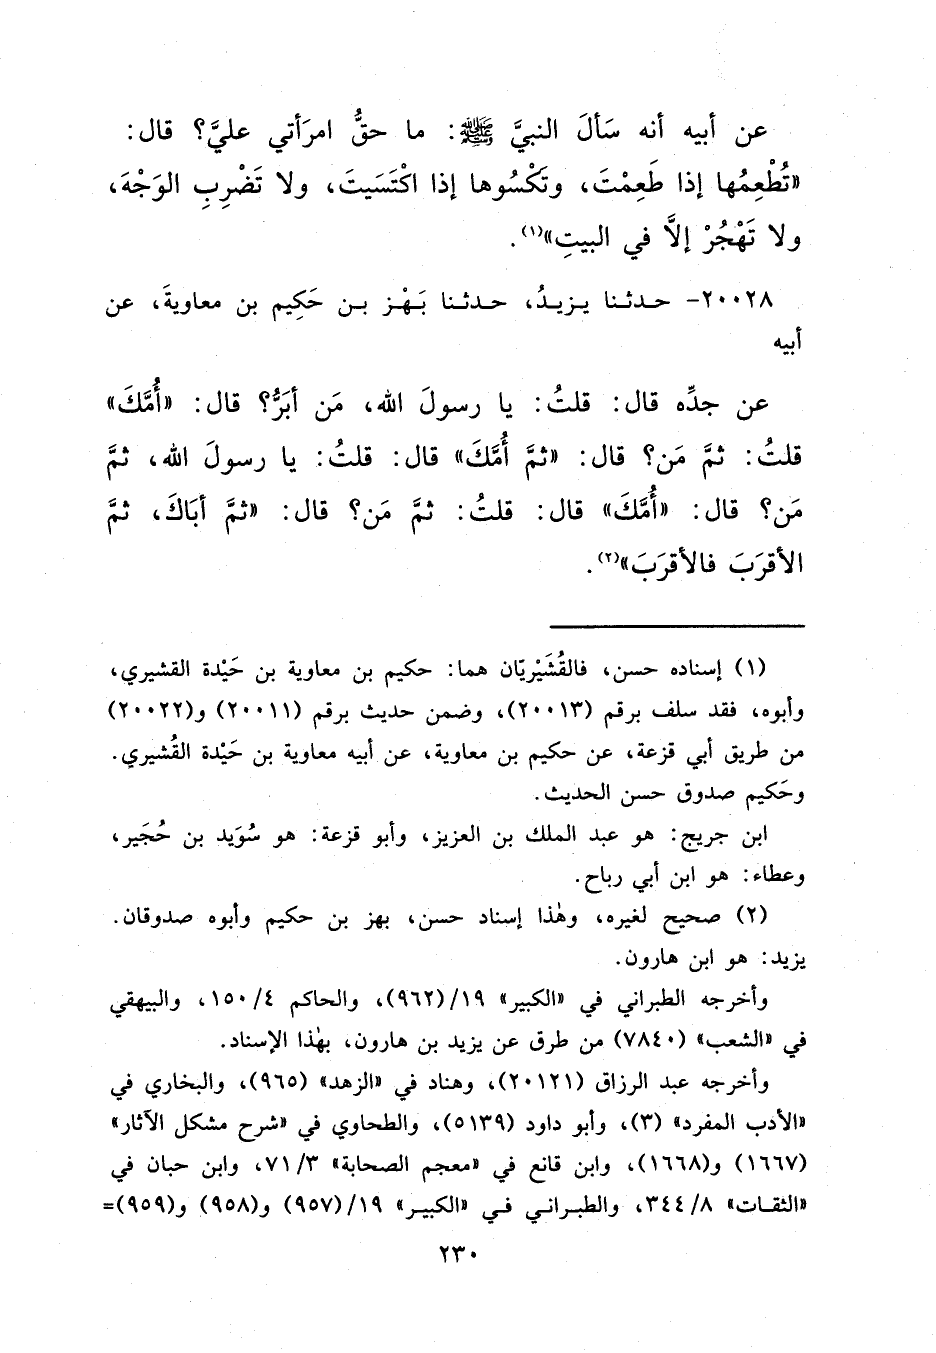 عن أبيه أنه سَألَ النبيَّ ﷺ: ما حقُّ امرَأتي عليَّ؟ قال:
«تُطْعِمُها إذا طَعِمْتَ، وتَكْسُوها إذا اكْتَسَيتَ، ولا تَضْرِبِ الوَجْهَ،
ولا تَهْجُرْ إلاَّ في البيتِ»(١).
٢٠٠٢٨- حدثنا يزيدُ، حدثنا بَهْز بن حَكِيم بن معاويةَ، عن
أبيه
عن جدِّه قال: قلتُ: يا رسولَ الله، مَن أبَرُّ؟ قال: «أُمَّكَ»
قلتُ: ثمَّ مَن؟ قال: «ثمَّ أُمَّكَ» قال: قلتُ: يا رسولَ الله، ثمَّ
مَن؟ قال: «أُمَّكَ» قال: قلتُ: ثمَّ مَن؟ قال: «ثمَّ أبَاكَ، ثمَّ
الأقرَبَ فالأقرَبَ»(٢).
(١) إسناده حسن، فالقُشَيْريّان هما: حكيم بن معاوية بن حَيْدة القشيري،
وأبوه، فقد سلف برقم (٢٠٠١٣)، وضمن حديث برقم (٢٠٠١١) و(٢٠٠٢٢)
من طريق أبي قزعة، عن حكيم بن معاوية، عن أبيه معاوية بن حَيْدة القُشيري.
وحَكيم صدوق حسن الحديث.
ابن جريج: هو عبد الملك بن العزيز، وأبو قزعة: هو سُوَيد بن حُجَير،
وعطاء: هو ابن أبي رباح.
(٢) صحيح لغيره، وهٰذا إسناد حسن، بهز بن حكيم وأبوه صدوقان.
يزيد: هو ابن هارون.
وأخرجه الطبراني في «الكبير» ١٩/(٩٦٢)، والحاكم ٤/ ١٥٠، والبيهقي
في «الشعب» (٧٨٤٠) من طرق عن يزيد بن هارون، بهٰذا الإسناد.
وأخرجه عبد الرزاق (٢٠١٢١)، وهناد في «الزهد» (٩٦٥)، والبخاري في
«الأدب المفرد» (٣)، وأبو داود (٥١٣٩)، والطحاوي في «شرح مشكل الآثار»
(١٦٦٧) و(١٦٦٨)، وابن قانع في «معجم الصحابة» ٣/ ٧١، وابن حبان في
«الثقات» ٨/ ٣٤٤، والطبراني في «الكبير» ١٩/(٩٥٧) و(٩٥٨) و(٩٥٩)=
٢٣٠